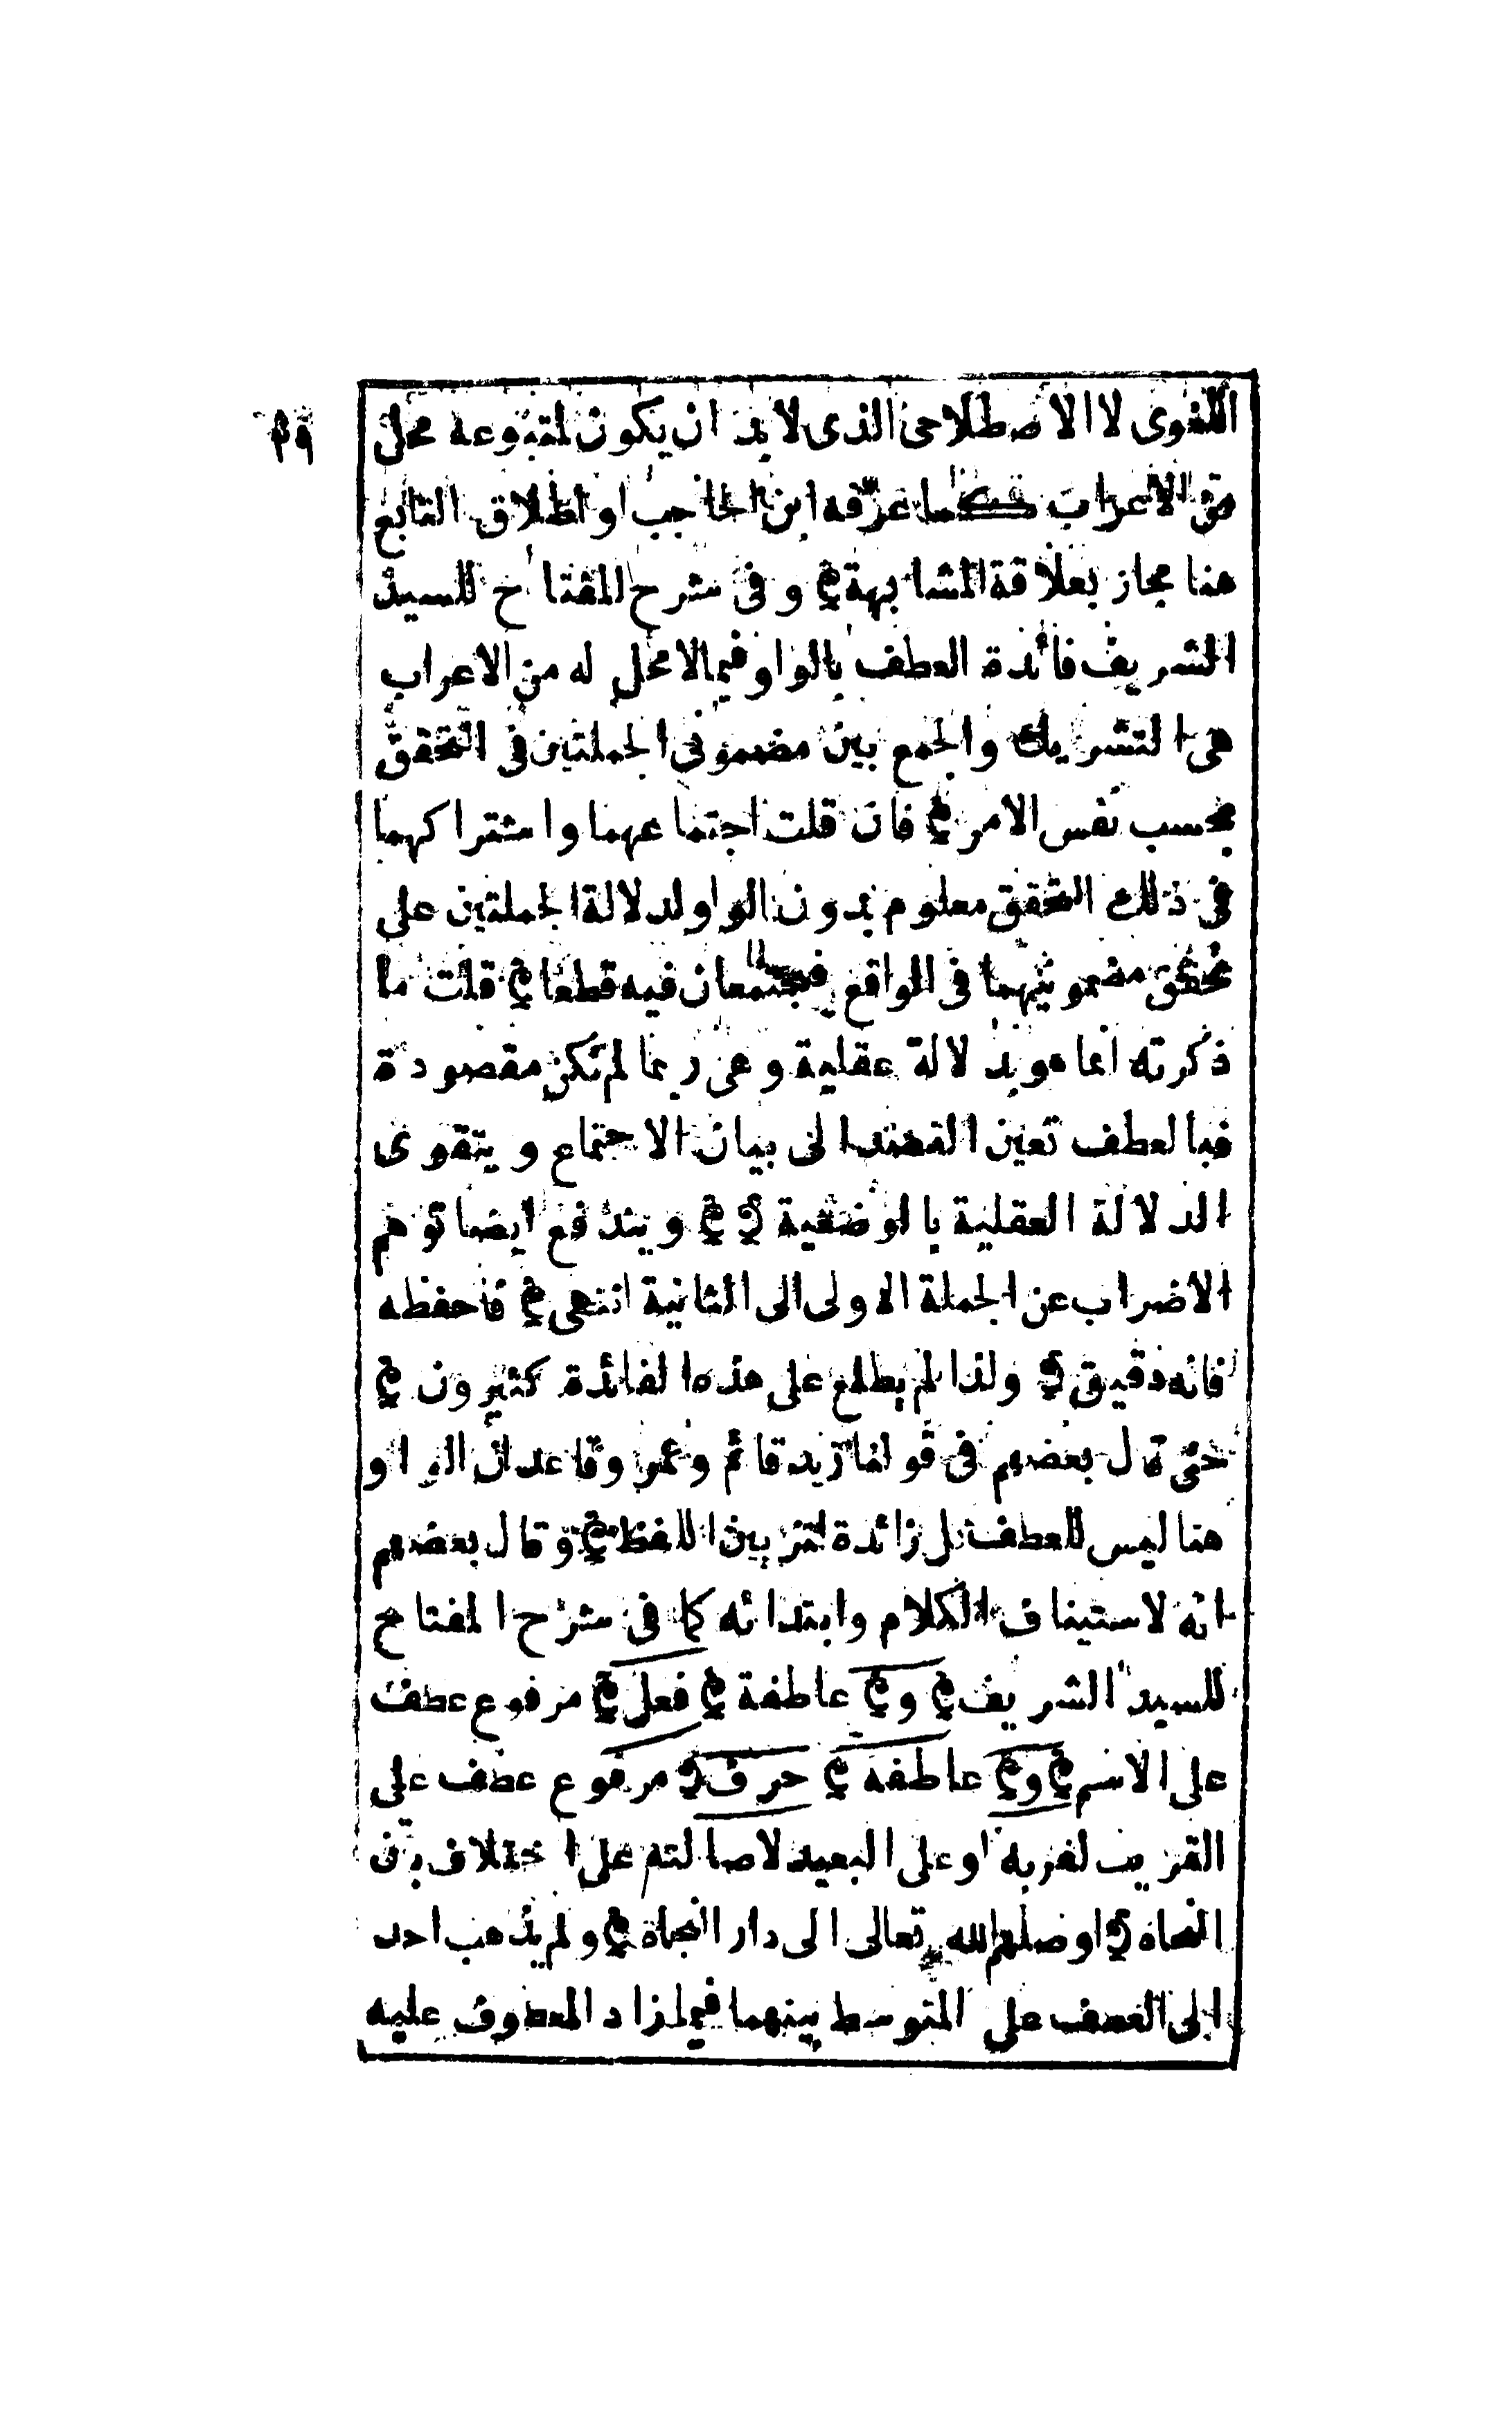 اللغوى لا الاصطلاحى الذى لا بد ان يكون لمتبوعه محل
من الاعراب كما عرّفه ابن الحاجب او اطلاق التابع
هنا مجاز بعلاقة المشابهة وفى شرح المفتاح للسيد
الشريف فائدة العطف بالواو فيما لا محل له من الاعراب
هى التشريك والجمع بين مضمونى الجملتين فى التحقق
بحسب نفس الامر فان قلت اجتماعهما واشتراكهما
فى ذلك التحقق معلوم بدون الواو لدلالة الجملتين على
تحقق مضمونيهما فى الواقع فيجتمعان فيه قطعا قلت ما
ذكرته انما هو بدلالة عقلية وهى ربما لم تكن مقصودة
فبالعطف تعين القصد الى بيان الاجتماع ويتقوى
الدلالة العقلية بالوضعية ويندفع ايضا توهم
الاضراب عن الجملة الاولى الى الثانية انتهى فاحفظه
فانه دقيق ولذا لم يطلع على هذه الفائدة كثيرون
حتى قال بعضهم فى قولنا زيد قائم وعمرو قاعد ان الواو
هنا ليس للعطف بل زائدة لتزيين اللفظ وقال بعضهم
انه لاستيناف الكلام وابتدائه كما فى شرح المفتاح
للسيد الشريف و عاطفة فعل مرفوع عطف
على الاسم و عاطفه حرف مرفوع عطف على
القريب لقربه او على البعيد لاصالته على اختلاف بين
النحاه اوصلهم الله تعالى الى دار النجاة ولم يذهب احد
الى العطف على المتوسط بينهما فيما زاد المعطوف عليه
٣٩